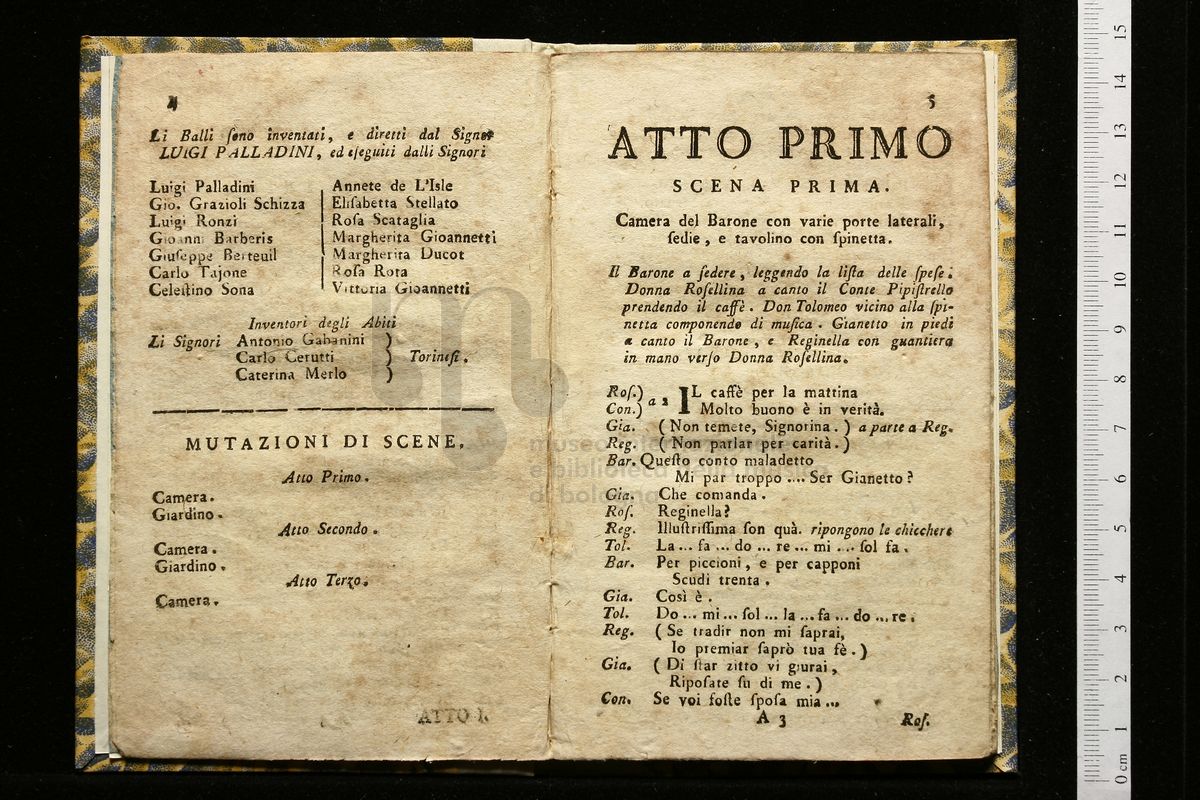 4
Li Balli ſono inventati, e diretti dal Signor
LUIGI PALLADINI, ed eſeguiti dalli Signori
Luigi Palladini
Gio. Grazioli Schizza
Luigi Ronzi
Gioanni Barberis
Giuſeppe Berteuil
Carlo Tajone
Celeſtino Sona
Annete de L'Isle
Eliſabetta Stellato
Roſa Scataglia
Margherita Gioannetti
Margherita Ducot
Roſa Rota
Vittoria Gioannetti
Inventori degli Abiti
Li Signori Antonio Gabanini
Carlo Cerutti
Caterina Merlo
} Torineſi.
MUTAZIONI DI SCENE.
Atto Primo.
Camera.
Giardino.
Atto Secondo.
Camera.
Giardino.
Atto Terzo.
Camera.
ATTO I.
5
ATTO PRIMO
SCENA PRIMA.
Camera del Barone con varie porte laterali,
ſedie, e tavolino con ſpinetta.
Il Barone a ſedere, leggendo la liſta delle ſpeſe.
Donna Roſellina a canto il Conte Pipiſtrello
prendendo il caffè. Don Tolomeo vicino alla ſpi-
netta componendo di muſica. Gianetto in piedi
a canto il Barone, e Reginella con guantiera
in mano verſo Donna Roſellina.
Roſ.) a 2 IL caffè per la mattina
Con.) Molto buono è in verità.
Gia. (Non temete, Signorina.) a parte a Reg.
Reg. (Non parlar per carità.)
Bar. Queſto conto maladetto
Mi par troppo .... Ser Gianetto?
Gia. Che comanda.
Roſ. Reginella?
Reg. Illuſtriſſima ſon quà. ripongono le chicchere
Tol. La ... fa ... do ... re ... mi ... ſol fa.
Bar. Per piccioni, e per capponi
Scudi trenta.
Gia. Così è.
Tol. Do ... mi ... ſol ... la ... fa ... do ... re.
Reg. (Se tradir non mi ſaprai,
Io premiar ſaprò tua fè.)
Gia. (Di ſtar zitto vi giurai,
Ripoſate ſu di me.)
Con. Se voi foſte ſpoſa mia ...
A 3 Roſ.
museo
e biblioteca
di bologna
0 cm 1 2 3 4 5 6 7 8 9 10 11 12 13 14 15